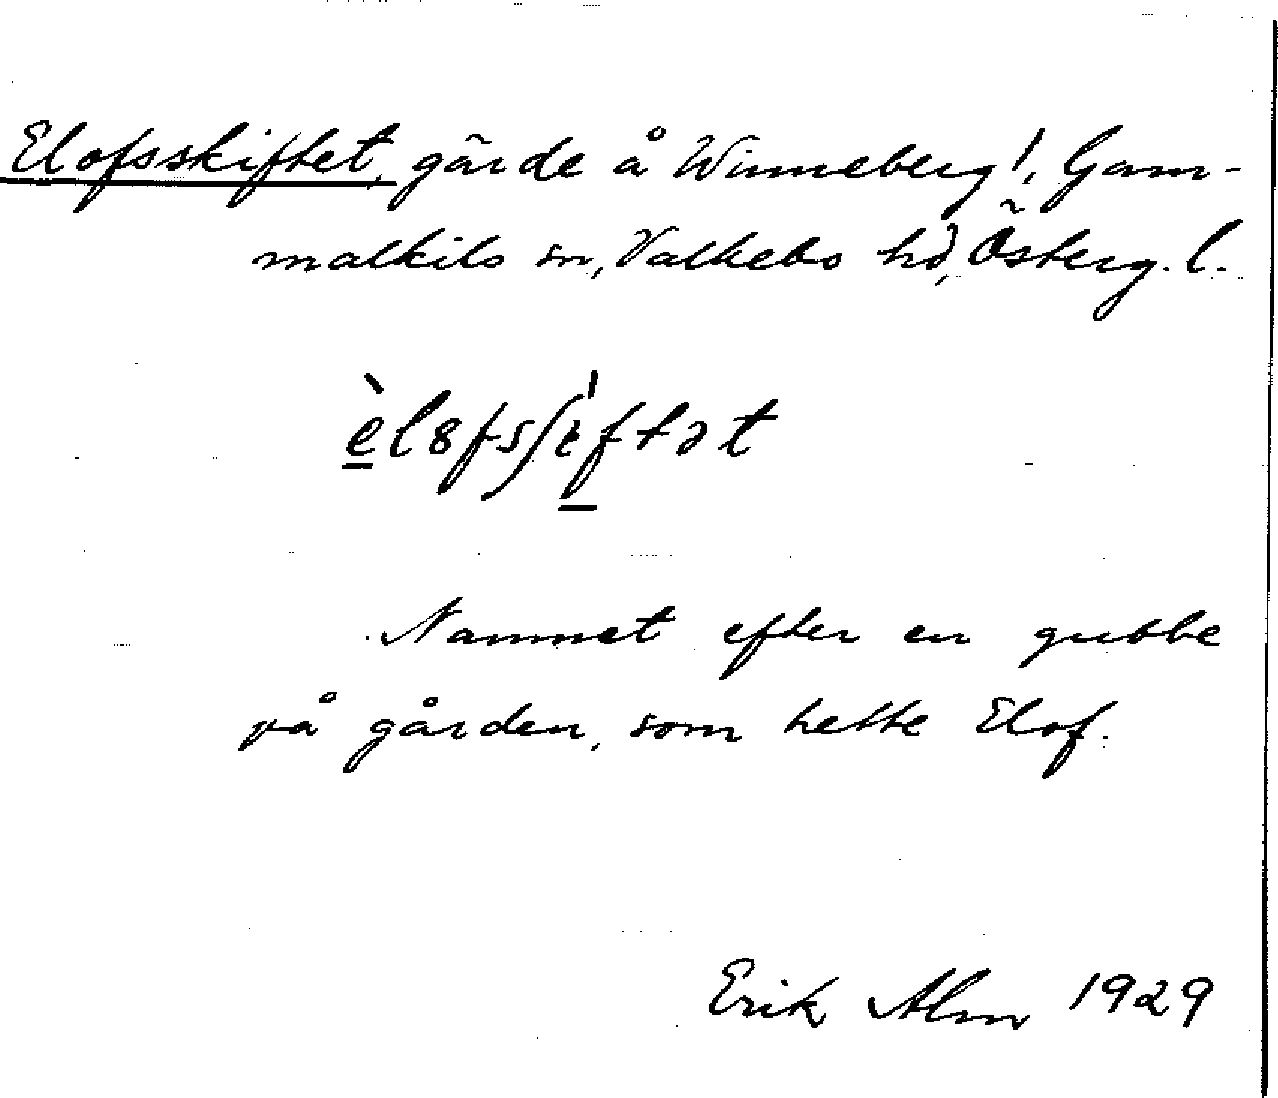 Elofsskiftet, gärde å Winneberg!, Gam-
malkils sn, Valkebo hd, Österg. l.
èlofsʃìftət
Namnet efter en gubbe
på gården, som hette Elof.
Erik Alm 1929